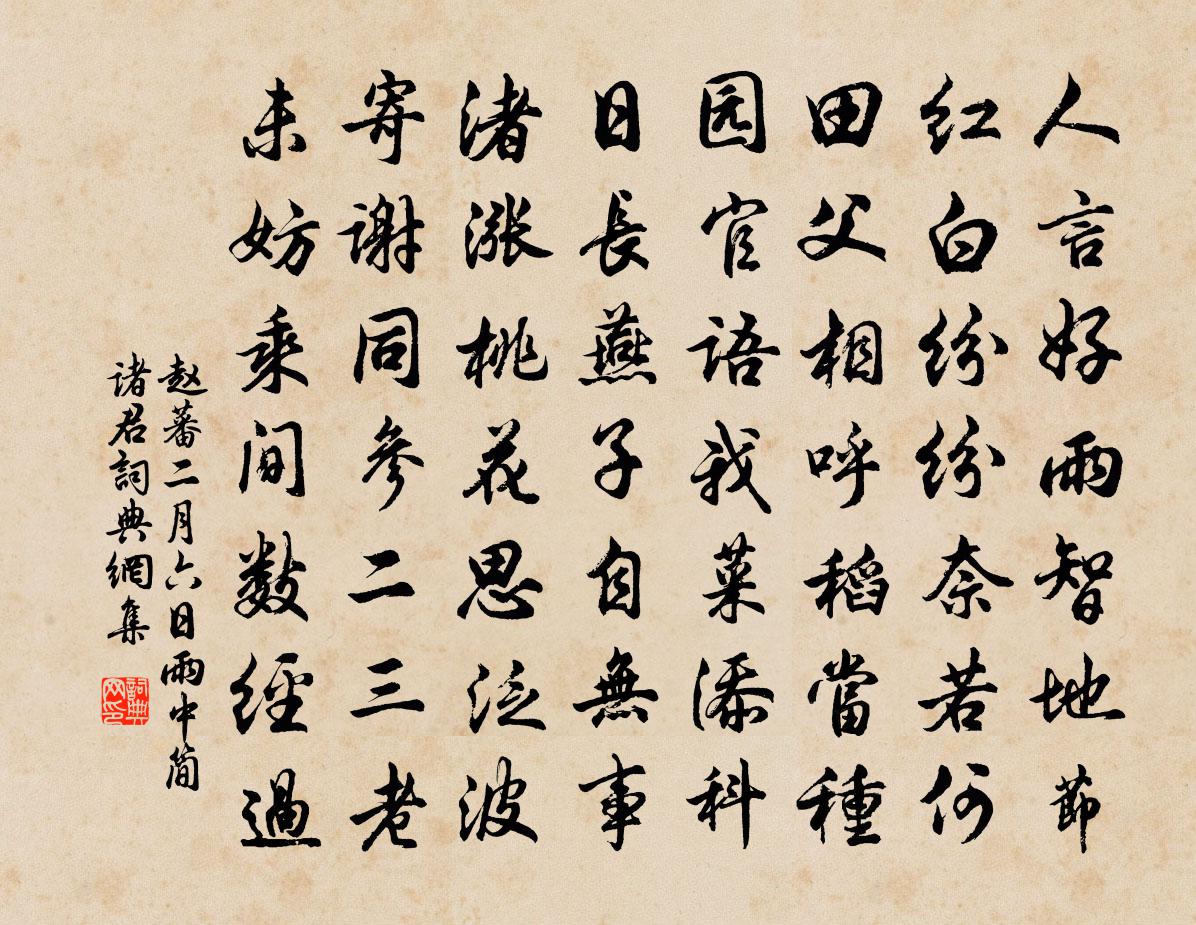 人言好雨智地節
红白纷纷奈若何
田父相呼稻當種
园官语我菜添科
日長燕子自無事
渚漲桃花思泛波
寄謝同參二三老
未妨乘间數經過
赵蕃二月六日雨中简
诸君詞典網集
詞典
网印